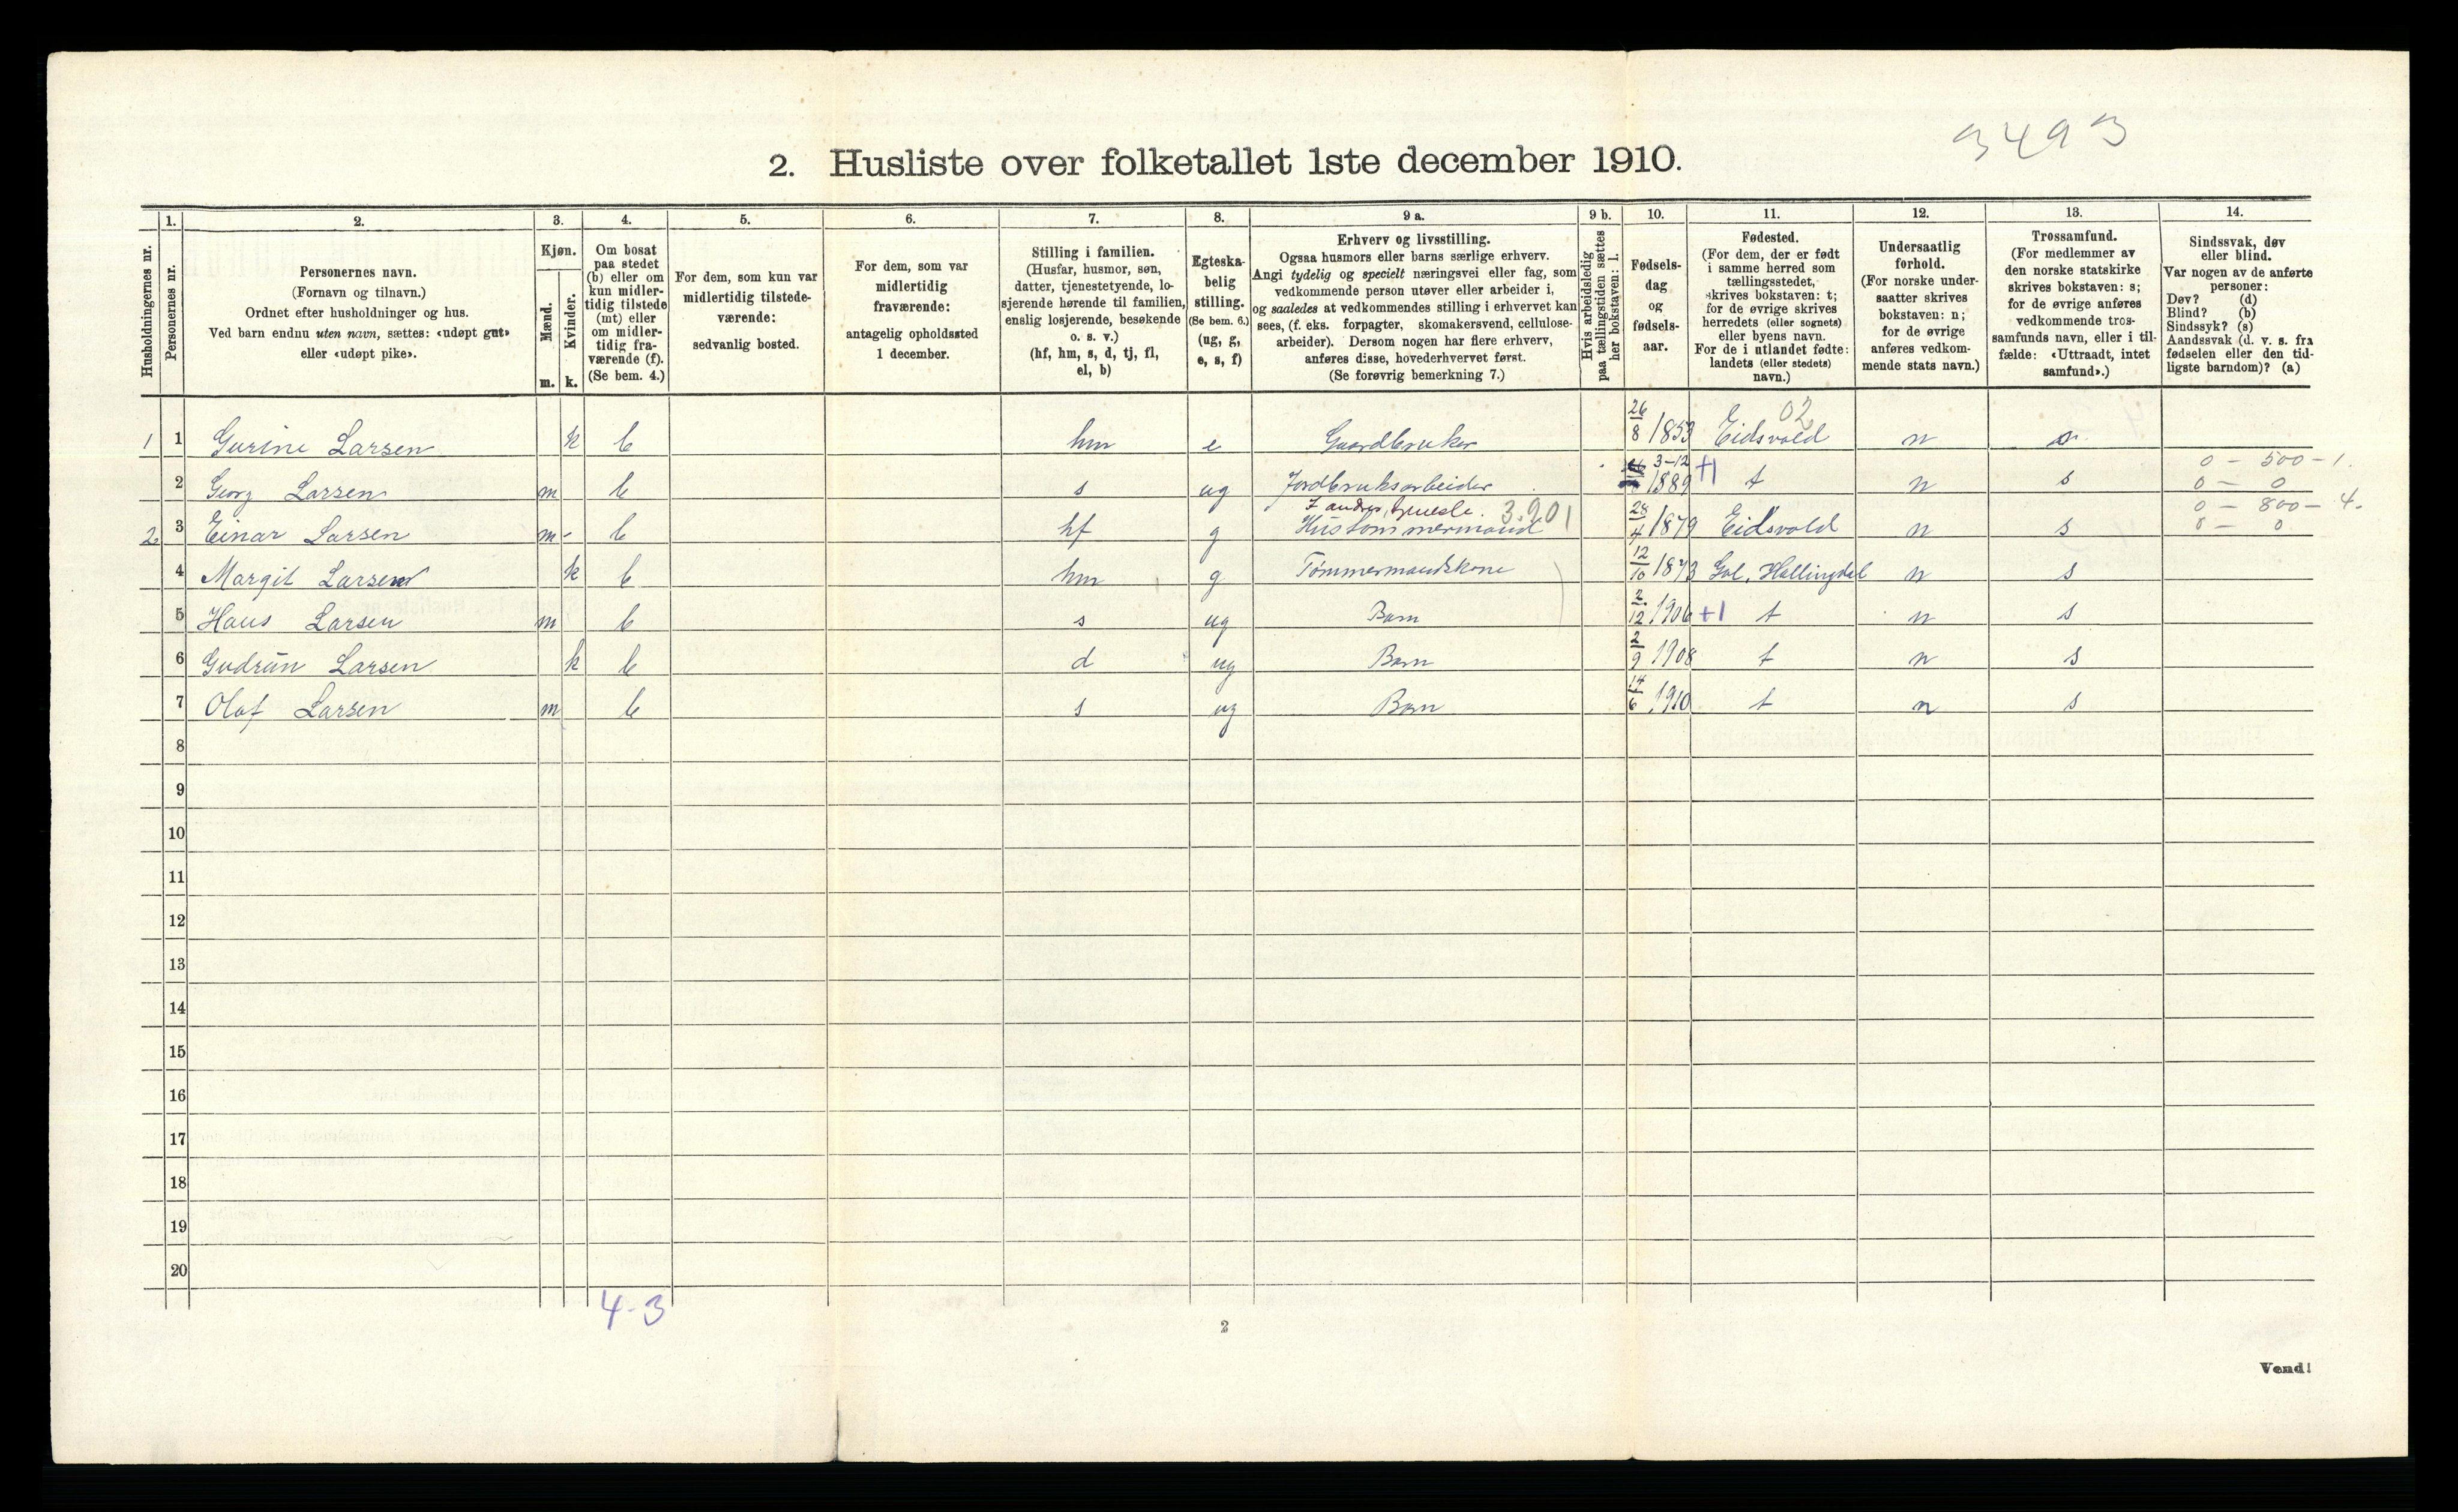 3493
2. Husliste over folketallet 1ste december 1910.
Husholdningernes nr.
1.
Personernes nr.
2.
Personernes navn.
(Fornavn og tilnavn.)
Ordnet efter husholdninger og hus.
Ved barn endnu uten navn, sættes: «udøpt gut»
eller «udøpt pike».
3.
Kjøn.
Mænd.
Kvinder.
m. k.
4.
Om bosat
paa stedet
(b) eller om
kun midler-
tidig tilstede
(mt) eller
om midler-
tidig fra-
værende (f).
(Se bem. 4.)
5.
For dem, som kun var
midlertidig tilstede-
værende:
sedvanlig bosted.
6.
For dem, som var
midlertidig
fraværende:
antagelig opholdssted
1 december.
7.
Stilling i familien.
(Husfar, husmor, søn,
datter, tjenestetyende, lo-
sjerende hørende til familien,
enslig losjerende, besøkende
o. s. v.)
(hf, hm, s, d, tj, fl,
el, b)
8.
Egteska-
belig
stilling.
(Se bem. 6.)
(ug, g,
e, s, f)
9 a.
Erhverv og livsstilling.
Ogsaa husmors eller barns særlige erhverv.
Angi tydelig og specielt næringsvei eller fag, som
vedkommende person utøver eller arbeider i,
og saaledes at vedkommendes stilling i erhvervet kan
sees, (f. eks. forpagter, skomakersvend, cellulose-
arbeider). Dersom nogen har flere erhverv,
anføres disse, hovederhvervet først.
(Se forøvrig bemerkning 7.)
9 b.
Hvis arbeidsledig
paa tællingstiden sættes
her bokstaven: l.
10.
Fødsels-
dag
og
fødsels-
aar.
11.
Fødested.
(For dem, der er født
i samme herred som
tællingsstedet,
skrives bokstaven: t;
for de øvrige skrives
herredets (eller sognets)
eller byens navn.
For de i utlandet fødte:
landets (eller stedets)
navn.)
12.
Undersaatlig
forhold.
(For norske under-
saatter skrives
bokstaven: n;
for de øvrige
anføres vedkom-
mende stats navn.)
13.
Trossamfund.
(For medlemmer av
den norske statskirke
skrives bokstaven: s;
for de øvrige anføres
vedkommende tros-
samfunds navn, eller i til-
fælde: «Uttraadt, intet
samfund».)
14.
Sindssvak, døv
eller blind.
Var nogen av de anførte
personer:
Døv? (d)
Blind? (b)
Sindssyk? (s)
Aandssvak (d. v. s. fra
fødselen eller den tid-
ligste barndom)? (a)
02
1 1 Gurine Larsen k b hm e Gaardbruker 26/8 1853 Eidsvold n s
0 - 500 - 1.
2 Georg Larsen m b s ug Jordbruksarbeider 3-12 1889 +1 t n s 0 - 0
3.901 0 - 800 - 4.
2. 3 Einar Larsen m - b hf g Hustømmermand 28/4 1879 Eidsvold n s 0 - 0
4 Margit Larsen k b hm g Tømmermandskone 12/10 1873 Gol, Hallingdal n s
5 Hans Larsen m b s ug Barn 2/12 1906 +1 t n s
6 Gudrun Larsen k b d ug Barn 2/9 1908 t n s
7 Olaf Larsen m b s ug Barn 14/6 1910 t n s
8
9
10
11
12
13
14
15
16
17
18
19
20
4-3
2
Vend!